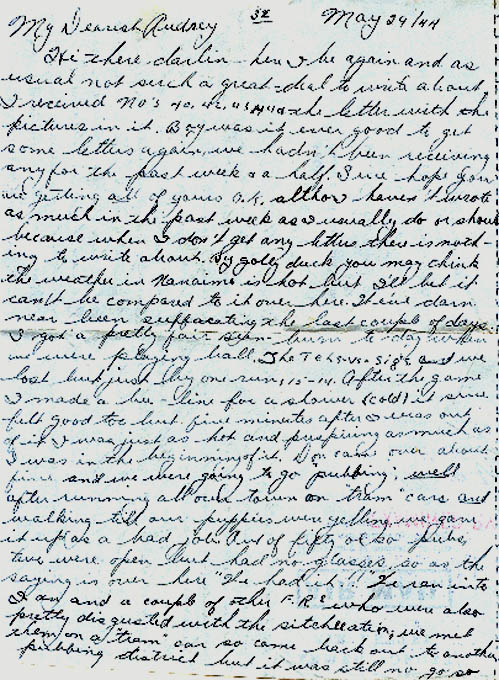 My Dearest Audrey 38 May 29/44
Hi there darlin - here I be again and as
usual not such a great-deal to write about.
I received No's 40, 42, 43 & 44 the letter with the
pictures in it. Boy was it ever good to get
some letters again, we hadn't been receiving
any for the past week & a half. I sure hope you
are getting all of yours O.K. altho I haven't wrote
as much in the past week as I usually do or should
because when I don't get any letters there is noth-
ing to write about. By golly duck you may think
the weather in Nanaimo is hot but I'll bet it
can't be compared to it over here. We've darn
near been suffacating the last couple of days.
I got a pretty fair sun-burn to-day when
we were playing ball. The Techs vs Sigs and we
lost but just by one run 15-14. After the game
I made a bee-line for a shower (cold) it sure
felt good too but five minutes after I was out
of it I was just as hot and puspiring as much as
I was in the beginning of it. Don came over about
five and we were going to go "pubbing", well
after running all over town on "tram" cars and
walking till our puppies were yelling we gave
it up as a bad job. Out of fifty or so pubs
two were open but had no glasses, so as the
saying is over here "We had it"! We ran into
Ian and a couple of other F.R. who were also
pretty disgusted with the sitcheation; we met
them on a "tram" car so came back out to another
pubbing district but it was still no go so